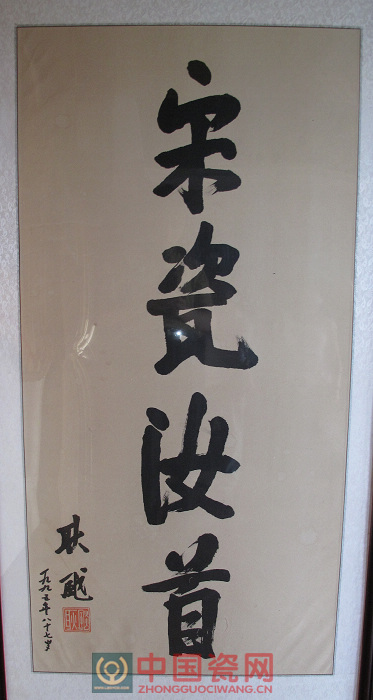 宋瓷汝首
耿飚
一九九五年八十七岁
中国瓷网
ZHONGGUOCIWANG.CN